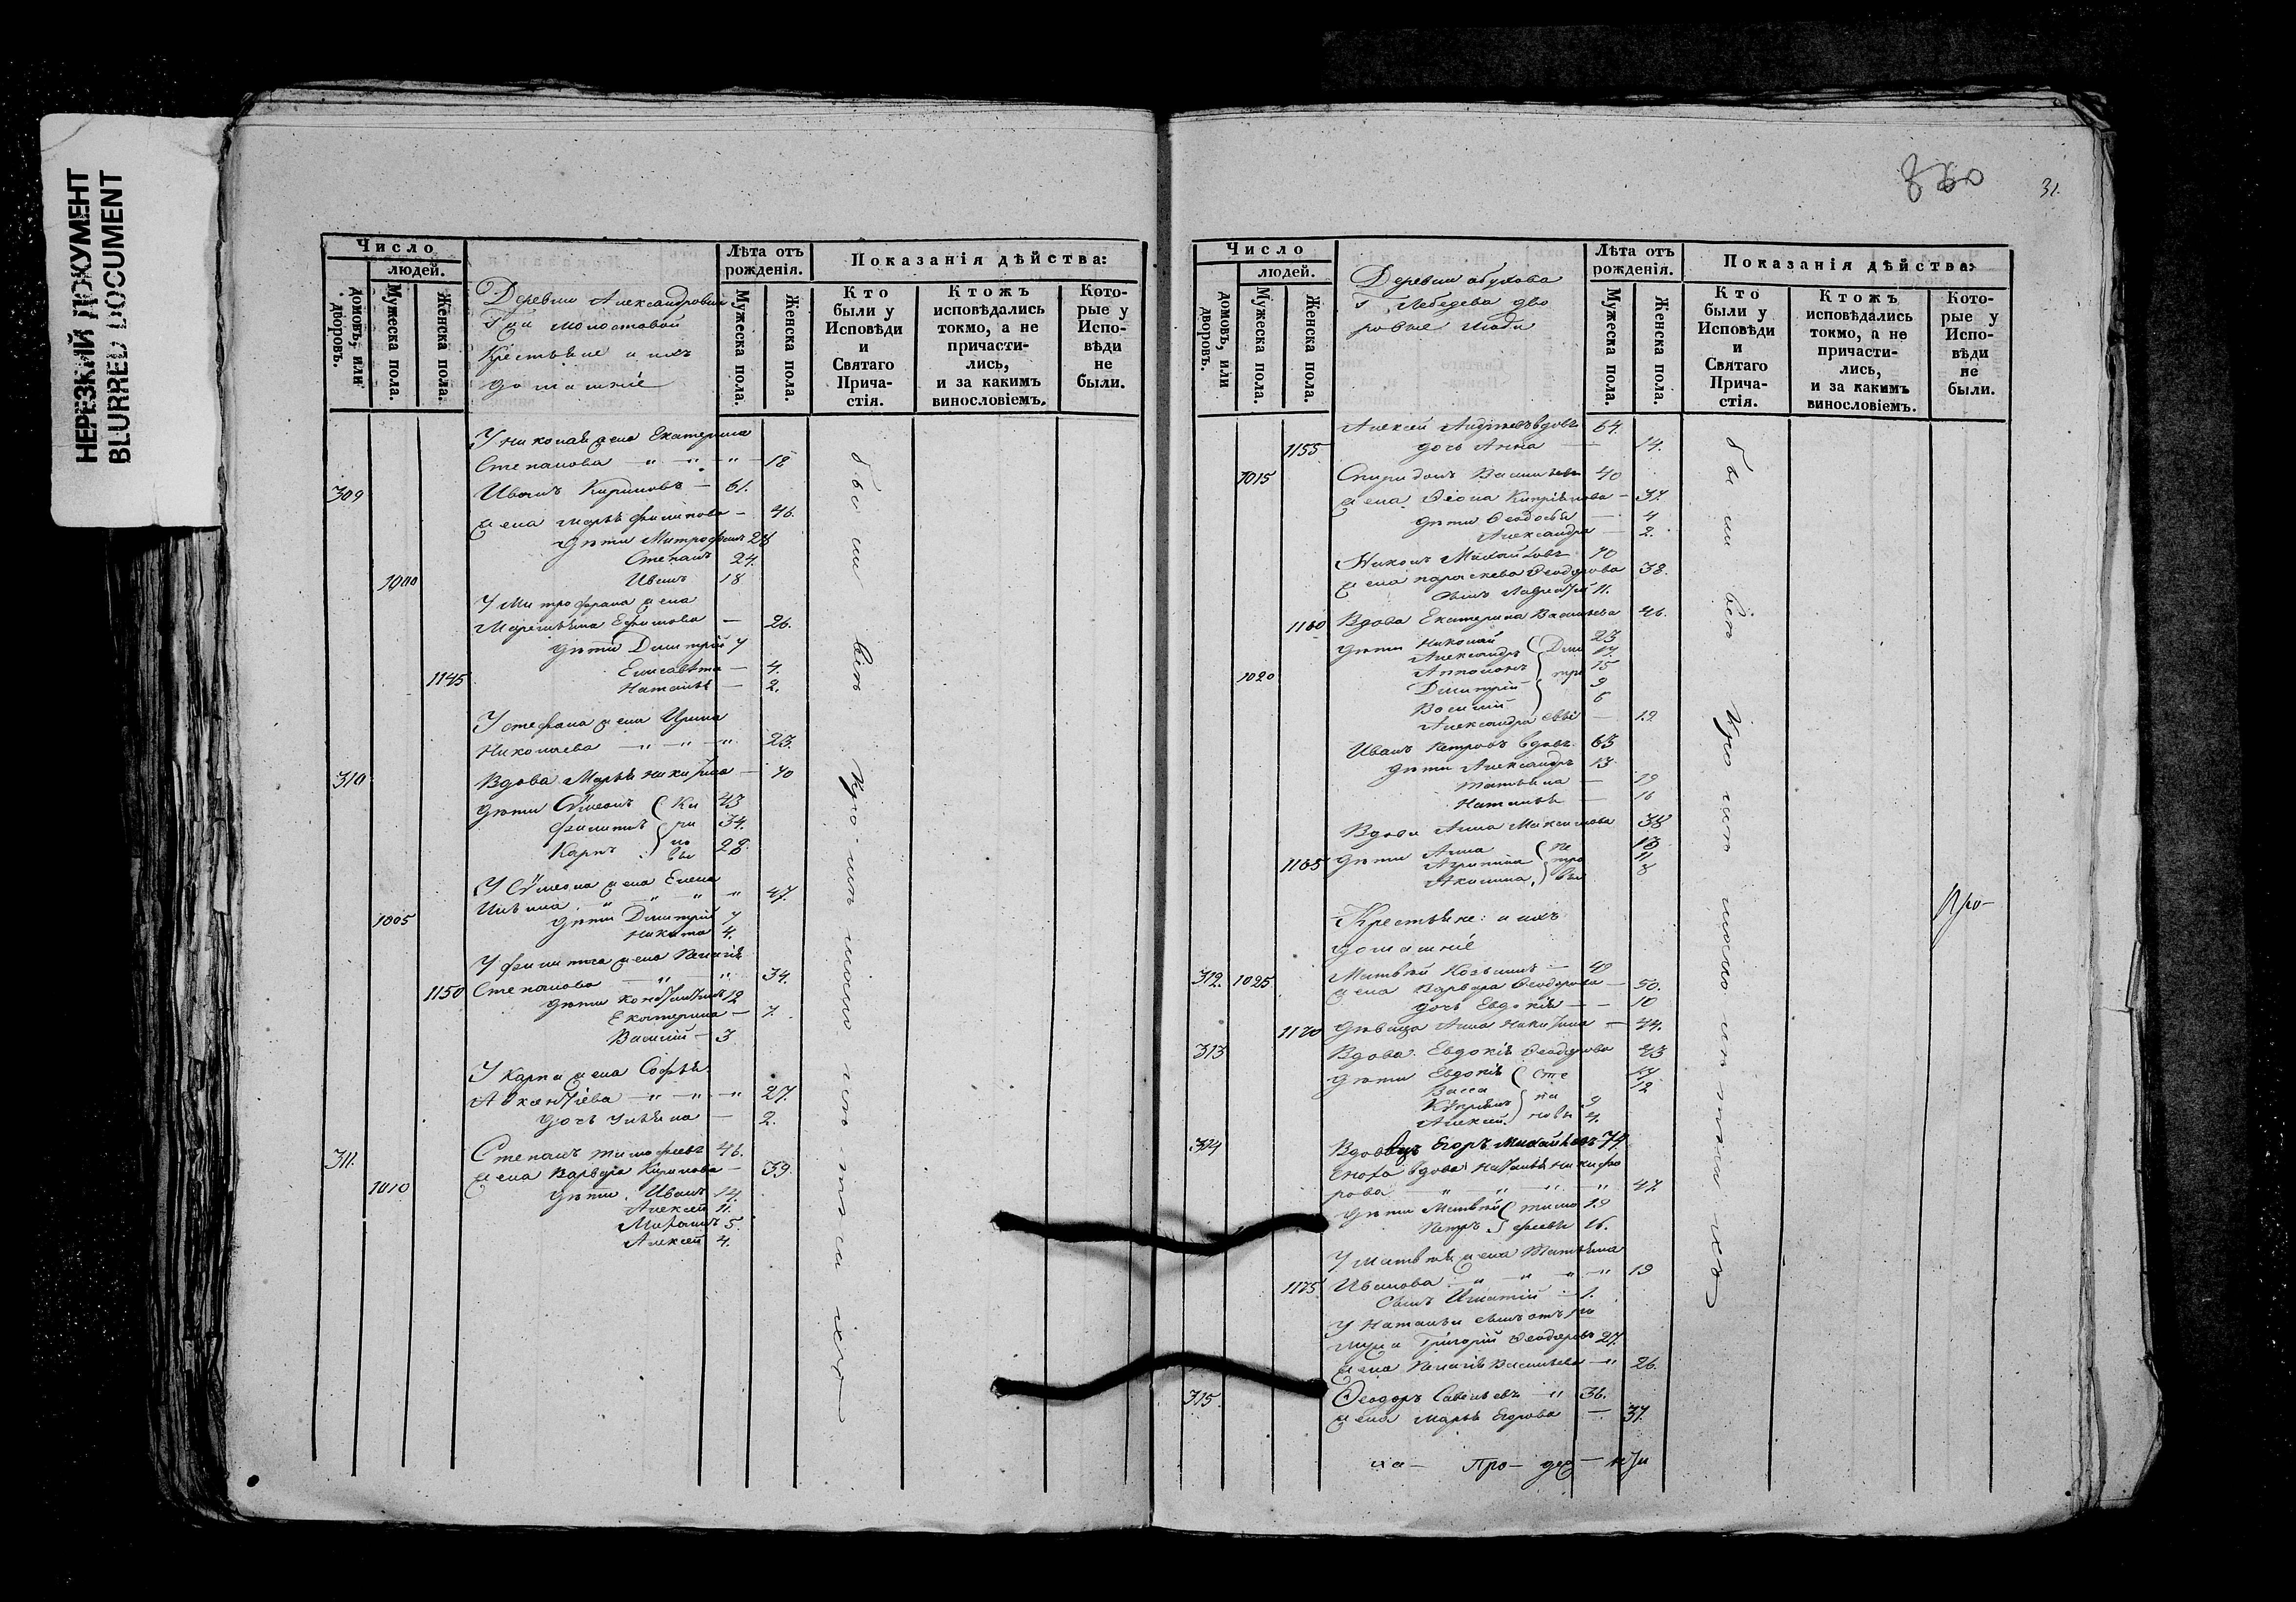 НЕРЕЗКИЙ ДОКУМЕНТ
BLURRED DOCUMENT
Число
людей.
домовъ, или дворовъ.
Мужеска пола.
Женска пола.
Деревни Александровки
Г жи Молостовой
Крестьяне и ихъ
домашніе
Лѣта отъ рожденія.
Мужеска пола.
Женска пола.
Показанія дѣйства:
Кто были у Исповѣди и Святаго Прича-стія.
Ктожъ исповѣдались токмо, а не причасти-лись, и за какимъ винословіемъ.
Кото-рые у Испо-вѣди не были.
У Николая жена Екатерина
Степанова — " — " — " — 18
309 Иванъ Кириловъ — 61.
жена Марья Филипова — 46.
дѣти Митрофанъ 28
Степанъ 24.
1000 Иванъ 18
У Митрофана жена
Ефимова — 26.
дѣти Димитрій 7
Елисавета — 4.
1145 Наталья — 2.
У Стефана жена Ирина
Николаева — " — " — " 23.
310 Вдова Марья Никитина — 70
дѣти Сѵмеонъ Ки 43
Филиппъ ри 34.
Карпъ ло вы 28.
У Сѵмеона жена Елена
Ильина " — " — " " 47.
1005 дѣти Димитрій 7
Никита 4.
У Филиппа жена Пелагія
1150 Степанова — " — " 34.
дѣти Константинъ 12
Екатерина — 7.
Василій — 3
У Карпа жена Софья
— " — " — " 27.
дочь Ульяна — 2.
311. Степанъ Тимофеевъ 46.
жена Варвара Кирилова — 39.
1010 дѣти. Иванъ 14.
Алексей 11.
Михаилъ 5.
Алексей 4.
были всѣ
860
31.
Число
людей.
домовъ, или дворовъ.
Мужеска пола.
Женска пола.
Деревни Абухова
Г Лебедева дво
ровые люди
Лѣта отъ рожденія.
Мужеска пола.
Женска пола.
Показанія дѣйства:
Кто были у Исповѣди и Святаго Прича-стія.
Ктожъ исповѣдались токмо, а не причасти-лись, и за какимъ винословіемъ.
Кото-рые у Испо-вѣди не были.
Алексей Андреевъ вдовъ 64.
1155 дочь Анна — 14.
1015 Спиридонъ Васильевъ 40
жена Ѳеона Кипріянова — 37.
дѣти Ѳеодосья — 4
Александра — 2.
Никонъ Михайловъ 40
жена Параскева Ѳеодорова 38.
сынъ Лаврентій 11.
1160 Вдова Екатерина Васильева 46.
дѣти Николай Дми 23
Александръ 17.
1020 Аполонъ тр 15
Димитрій 9
Василій 6
Александра — 12
Иванъ Петровъ вдовъ. 63
дѣти Александръ 13
Татьяна — 19
Наталья — 16
Вдова Анна Максимова 38
1165 дѣти Анна Пе 13
Агрипина тро 11
Акилина, вы 8
Крестьяне: и ихъ
домашніе
312. 1025 Матвѣй Козьминъ — 49
жена Варвара Ѳеодорова — 50.
дочь Евдокія — — 10
1170 Дѣвица Анна Никитина — 44.
313 Вдова. Евдокія Ѳеодорова 43
дѣти Евдокія Сте 17
Васса па 12
Кѵпріянъ 9
Алексей. новы 4.
314 Вдовецъ Егоръ Михайловъ 74.
Сноха вдова Наталья Никифо
рова " " " " 47.
дѣти Матвѣй Тимо 19
Петръ феевы 16.
У Матвѣя жена Татьяна
1175 Иванова — " — " — " — " 19
Сынъ Игнатій — 1.
У Натальи сынъ отъ 1го
мужа Григорій Ѳеодоровъ 27.
жена Пелагія Васильева — " 26.
315. Ѳеодоръ Савельевъ — " 36.
жена Марья Егорова — 37.
были всѣ
Про-
на — Про — дер —